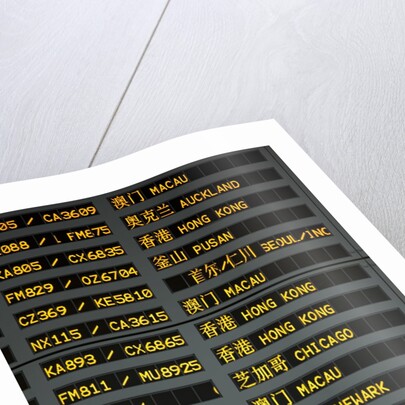 05 / CA3609 澳门 MACAU
088 / FME75 奥克兰 AUCKLAND
KA805 / CX6835 香港 HONG KONG
FM829 / OZ6704 釜山 PUSAN
CZ369 / KE5810 首尔/仁川 SEOUL/INC
NX115 / CA3615 澳门 MACAU
KA893 / CX6865 香港 HONG KONG
FM811 / MU8925 香港 HONG KONG
芝加哥 CHICAGO
澳门 MACAU
NEWARK